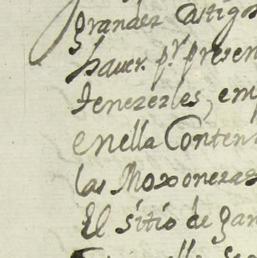 grandes Castigos
haver. pr. presen
tenerles, em
enella Conten
las Moxoneras
El sitio de gan